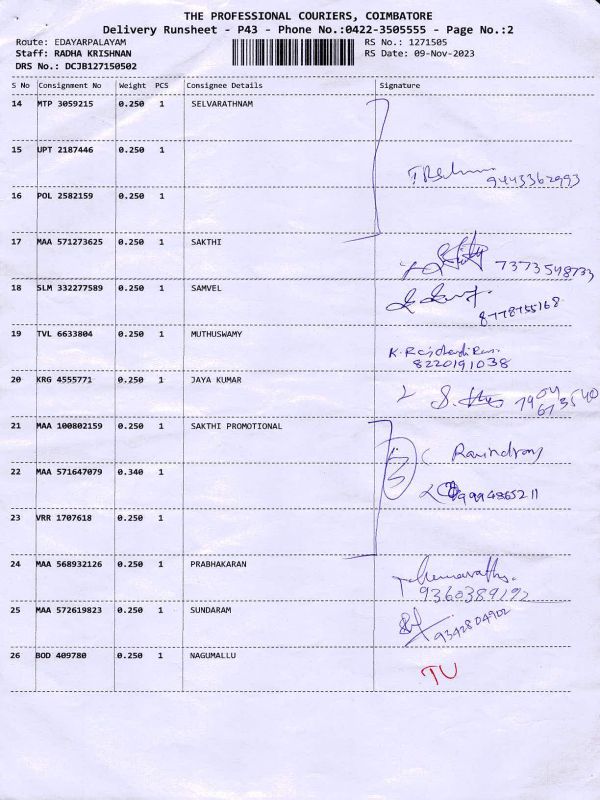 THE PROFESSIONAL COURIERS, COIMBATORE
Delivery Runsheet - P43 - Phone No.:0422-3505555 - Page No.:2
Route: EDAYARPALAYAM
RS No.: 1271505
Staff: RADHA KRISHNAN
RS Date: 09-Nov-2023
DRS No.: DCJB127150502
S No Consignment No Weight PCS Consignee Details Signature
14 MTP 3059215 0.250 1 SELVARATHNAM
15 UPT 2187446 0.250 1
9443362993
16 POL 2582159 0.250 1
17 MAA 571273625 0.250 1 SAKTHI
7373548733
18 SLM 332277589 0.250 1 SAMVEL
8778755168
19 TVL 6633804 0.250 1 MUTHUSWAMY
8220191038
20 KRG 4555771 0.250 1 JAYA KUMAR
21 MAA 100802159 0.250 1 SAKTHI PROMOTIONAL
Ravindran
22 MAA 571647079 0.340 1
9994865211
23 VRR 1707618 0.250 1
24 MAA 568932126 0.250 1 PRABHAKARAN
9360389192
25 MAA 572619823 0.250 1 SUNDARAM
9342804902
26 BOD 409780 0.250 1 NAGUMALLU
TU